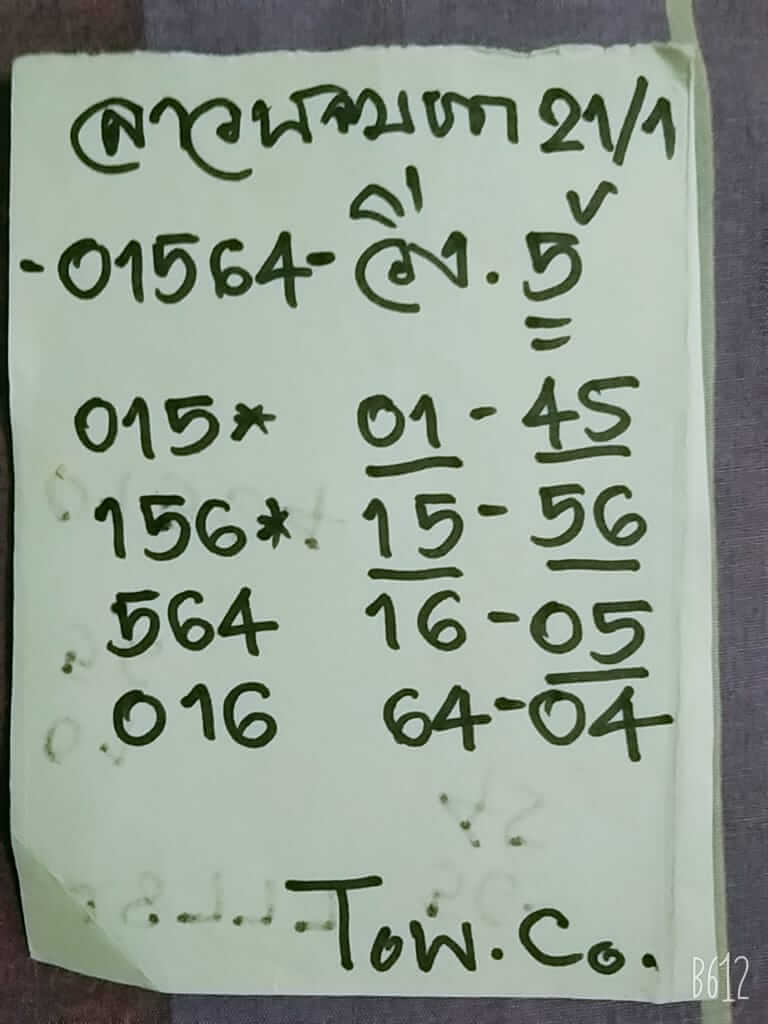 ลาวพัฒนา 21/1
-01564- วิ่ง. 5
015* 01 - 45
156* 15 - 56
564 16 - 05
016 64 - 04
Tow. Co.
B612